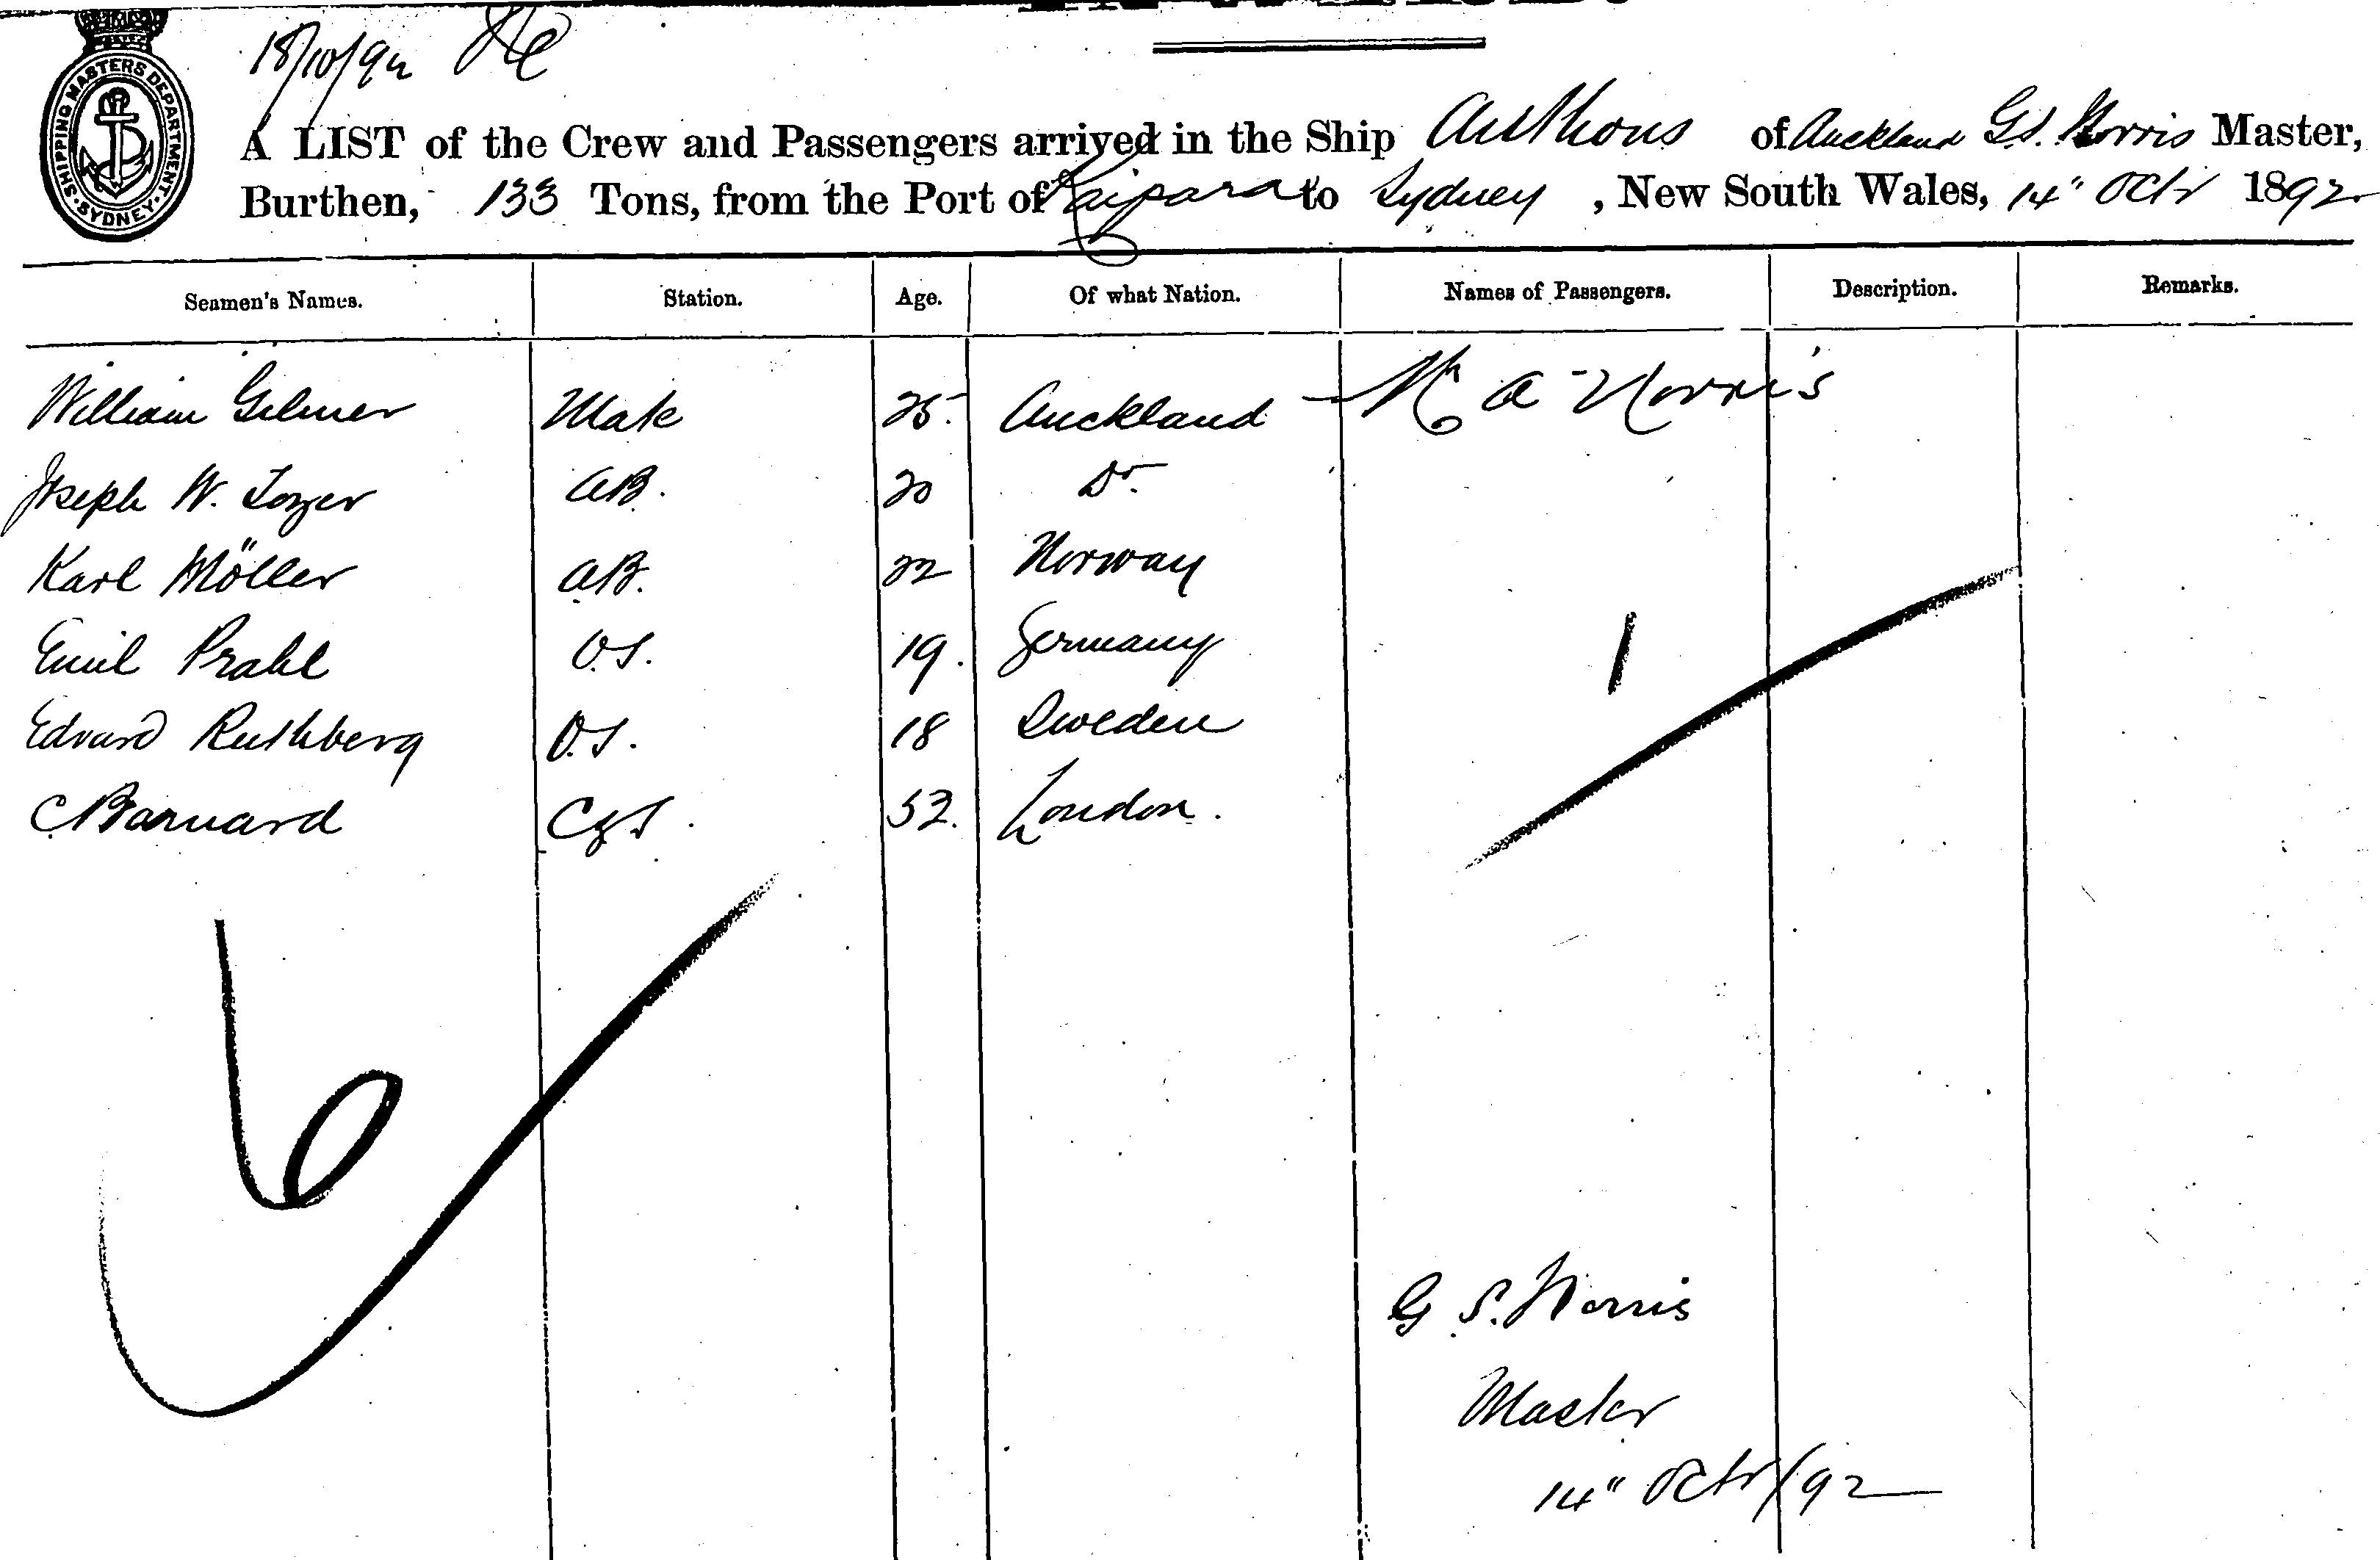 SHIPPING MASTERS DEPARTMENT
SYDNEY
18/10/92
A LIST of the Crew and Passengers arrived in the Ship of Auckland G.S. Norris Master,
Burthen, 133 Tons, from the Port of Kaipara to Sydney, New South Wales, 14" Octr 1892
Seamen's Names. Station. Age. Of what Nation. Names of Passengers. Description. Remarks.
William Gilmer Mate 25. Auckland A Norris
Joseph W. Tozer AB. 20 Do.
Karl Möller AB. 22 Norway
Emil Prahl O.S. 19. Germany
Edvard Ruthberg O.S. 18 Sweden
C Barnard C&S 52. London.
1
6
G S. Norris
Master
14" Octr/92